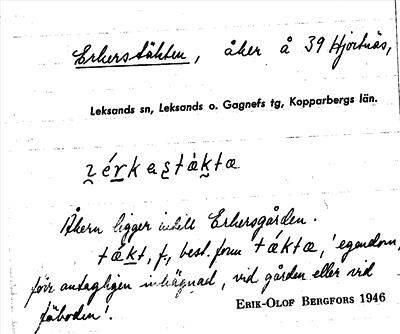 Erkerstäkten, åker å 39 Hjortnäs,
Leksands sn, Leksands o. Gagnefs tg, Kopparbergs län.
Åkern ligger intill Erkersgården.
f., best. form 'egendom,
förr antagligen inhägnad, vid gården eller vid
fäboden'.
ERIK-OLOF BERGFORS 1946